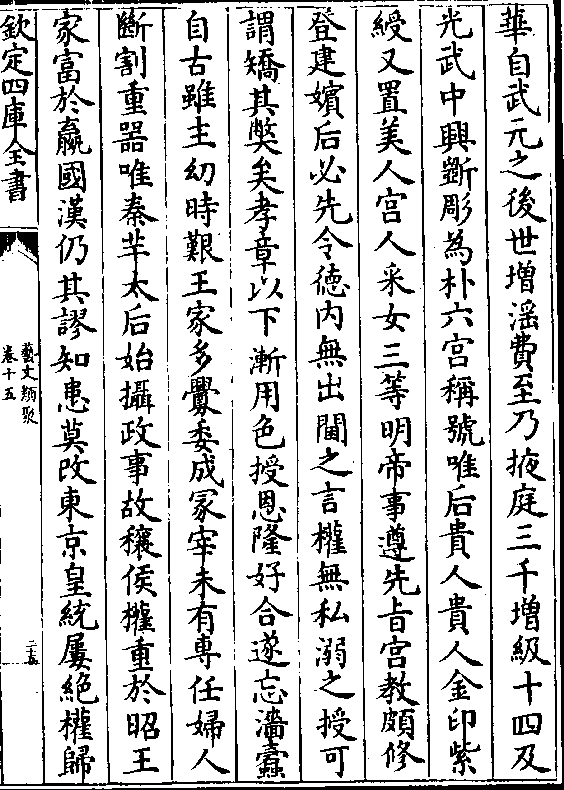 華自武元之後世增滛費至乃掖庭三千增級十四及
光武中興斵彫為朴六宮稱號唯后貴人貴人金印紫
綬又置美人宫人采女三等明帝事遵先旨宫教頗修
登建嬪后必先令徳内無出閫之言權無私溺之授可
謂矯其㢢矣孝章以下漸用色授恩隆好合遂忘淄蠹
自古雖主幼時艱王家多釁委成冢宰未有専任婦人
斷割重器唯秦羋太后始攝政事故穰侯權重於昭王
家富於嬴國漢仍其謬知患莫改東京皇統屢絶權歸
欽定四庫全書
藝文類聚
卷十五